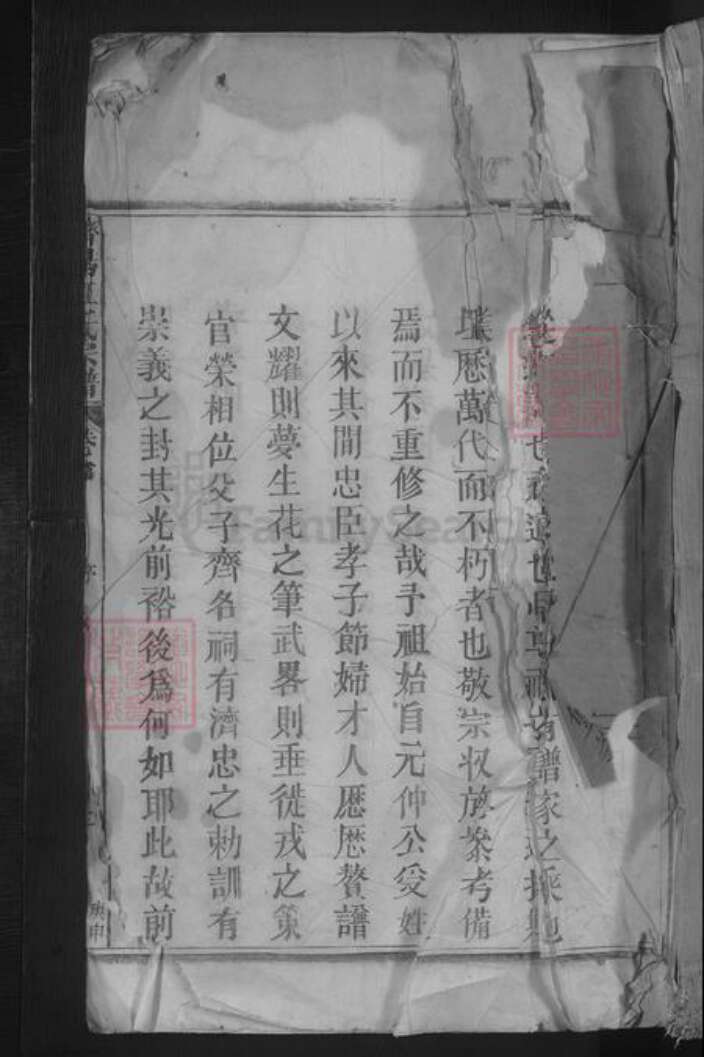 也 遠也 尊祖 譜家之
歷萬代而不朽者也敬宗收族叅考備
焉而不重修之哉予祖始自元仲公受姓
以來其間忠臣孝子節婦才人歷歷贅譜
文耀則夢生花之筆武畧則垂從戎之策
官榮相位父子齊名祠有濟忠之勅訓有
崇義之封其光前裕後為何如耶此故前
濟陽江氏宗譜 卷首
序
庚申
FamilySearch